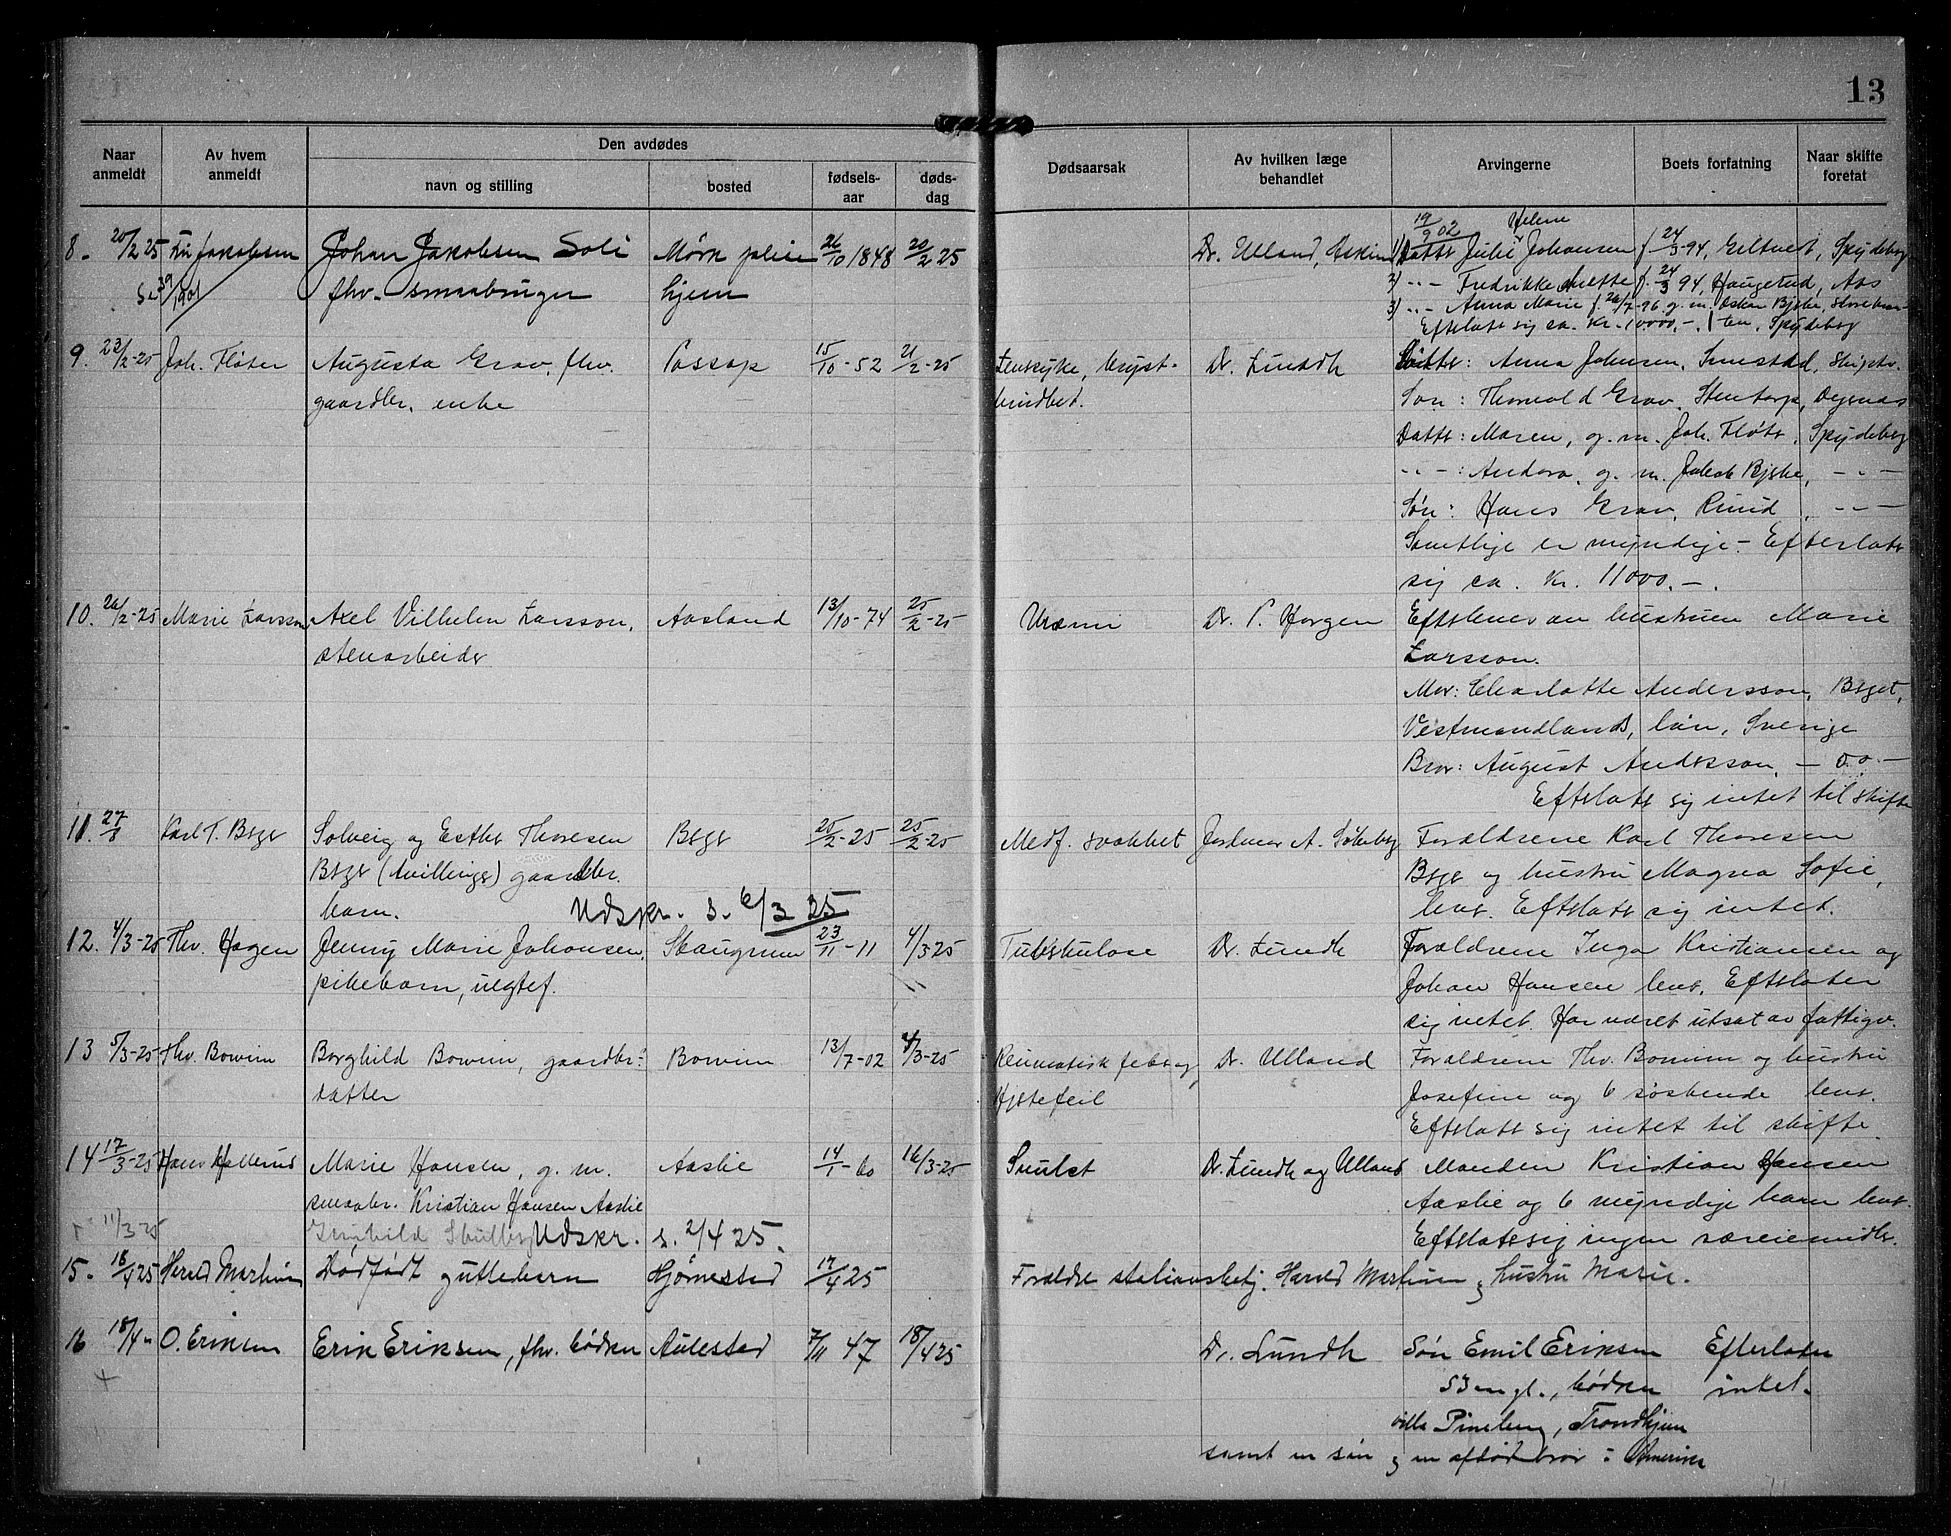 13
Naar anmeldt
Av hvem anmeldt
Den avdødes
navn og stilling
bosted
fødselsaar
dødsdag
Dødsaarsak
Av hvilken læge behandlet
Arvingerne
Boets forfatning
Naar skifte foretat
8. 20/2 25 Jakobsen Johan Jakobsen Soli Mørk pleie 26/10 1848 20/2 25 Dr. Ulland, Askim 1) Datter Julie Helene Johansen f 24/3-94, Spydeberg
fhv. smaabruger hjem 2) " - Fredrikke Anette f. 24/3 94, Haugstad, Aas
3) " - Anna Marie f 26/7-96 g. m. Oskar Bjerke
Efterlatt sig ca. Kr. 10000,- Spydeberg
9. 23/2-25 Joh. Fløter Augusta Grav, fhv. Possop 15/10-52 21/2-25 bryst- Dr. Lundh Datter: Anna Johansen, Smestad, Skiptv.
gaardbr. enke Søn: Thorvald Grav, Stentorp,
Datter: Maren, g. m. Joh. Fløter, Spydeberg
" - : Andora, g. m. Jakob Bjerke, - " -
Søn: Hans Grav, Rund, - " -
Samtlige er myndige. - Efterlatt
sig ca. Kr. 11000.-.
10. 26/2-25 Marie Larsson Axel Vilhelm Larsson, Aasland 13/10-74 25/2-25 Uræmi Dr. P. Horgen Efterleves av hustruen Marie
stenarbeider Larsson.
Mor: Charlotte Andersson, Berget,
Vestmandlands län, Sverige
Bror: August Andersson, - " -
Efterlatt sig intet til skifte
11. 27/2 Karl T. Berger Solveig og Esther Thoresen Berger 25/2-25 25/2-25 Medf. svakhet Jordmor A. Forældrene Karl Thoresen
Berger (tvillinger) gaardbr. Berger og hustru Magna Sofie,
barn. Udskr. s. 6/3 25 lever. Efterlatt sig intet.
12. 4/3-25 Thv. Hagen Jenny Marie Johansen, Skaugrum 23/11-11 4/3-25 Tuberkulose Dr. Lundh Forældrene Inga Kristiansen og
pikebarn, uegtef. Johan Hansen lever. Efterlater
sig intet. Har været utsat av fattigv.
13 5/3-25 Thv. Bowim Borghild Bowim, gaardbr. Bowim 13/7-02 4/3-25 Reumatisk feber og Dr. Ulland Forældrene Thv. Bowim og hustru
datter Hjertefeil Josefine og 6 søskende lever.
Efterlatt sig intet til skifte.
14 17/3-25 Hans Hallerud Marie Hansen, g. m. Aaslie 14/1-60 16/3-25 Dr. Lundh og Ulland Manden Kristian Hansen
smaabr. Kristian Hansen Aaslie Aaslie og 6 myndige barn lever.
11/3-25 Udskr. s. 2/4 25. Efterlatt sig ingen særeiemidler.
15. 18/4 25 Harald Martinsen Dødfødt guttebarn Hjørnestad 17/4 25 Forældre stationsbetj. Harald Martinsen og hustru Marie.
16 18/4 " O. Eriksen Erik Eriksen, fhv. bødker Aulestad 7/11 47 18/4 25 Dr. Lundh Søn Emil Eriksen Efterlater
53 aar gl., bødker intet.
villa Pineberg, Trondhjem
samt en søn og en avdød bror i Amerika